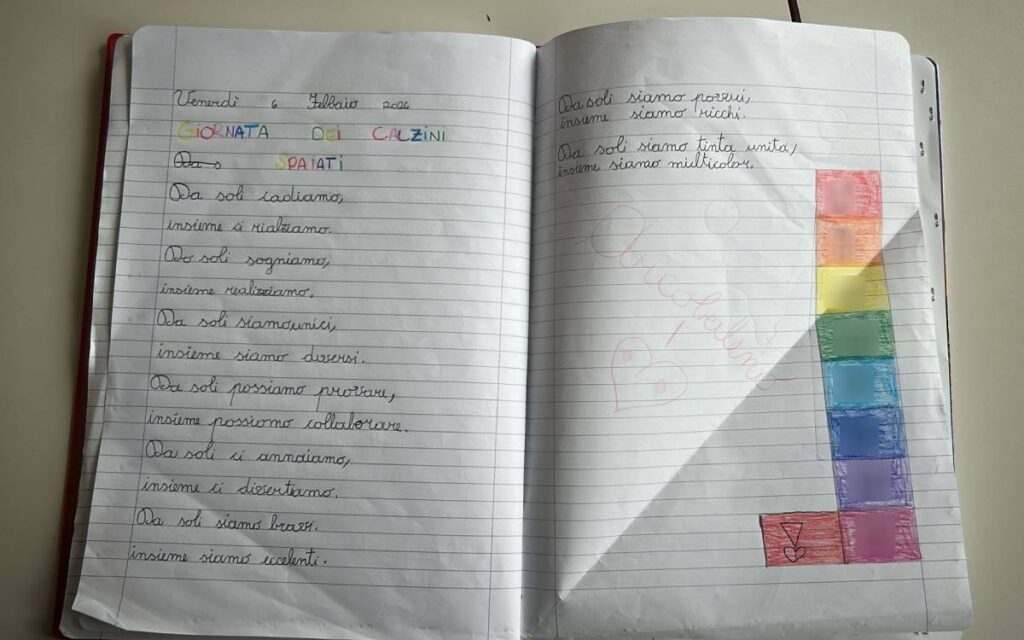 Venerdì 6 Febbaio 2026
GIORNATA DEI CALZINI
Da s SPAIATI
Da soli cadiamo,
insieme ci rialziamo.
Da soli sogniamo,
insieme realizziamo.
Da soli siamo unici,
insieme siamo diversi.
Da soli possiamo provare,
insieme possiamo collaborare.
Da soli ci annoiamo,
insieme ci divertiamo.
Da soli siamo bravi.
insieme siamo eccelenti.
Da soli siamo poveri,
insieme siamo ricchi.
Da soli siamo tinta unita,
insieme siamo multicolor.
Arcobaleno